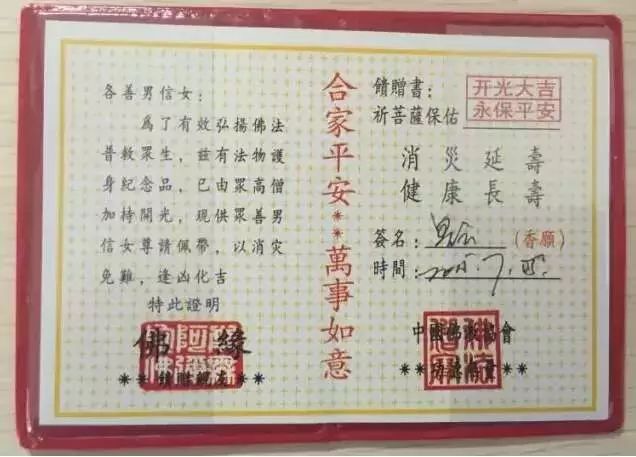 各善男信女：
為了有效弘揚佛法
普救眾生，茲有法物護
身紀念品，已由眾高僧
加持開光，現供眾善男
信女尊請佩帶，以消灾
免難，逢凶化吉
特此證明
佛緣
合家平安**萬事如意
饋贈書：
祈菩薩保佑
开光大吉
永保平安
消灾延壽
健康長壽
簽名：
(香願)
時間：
中國佛教協會